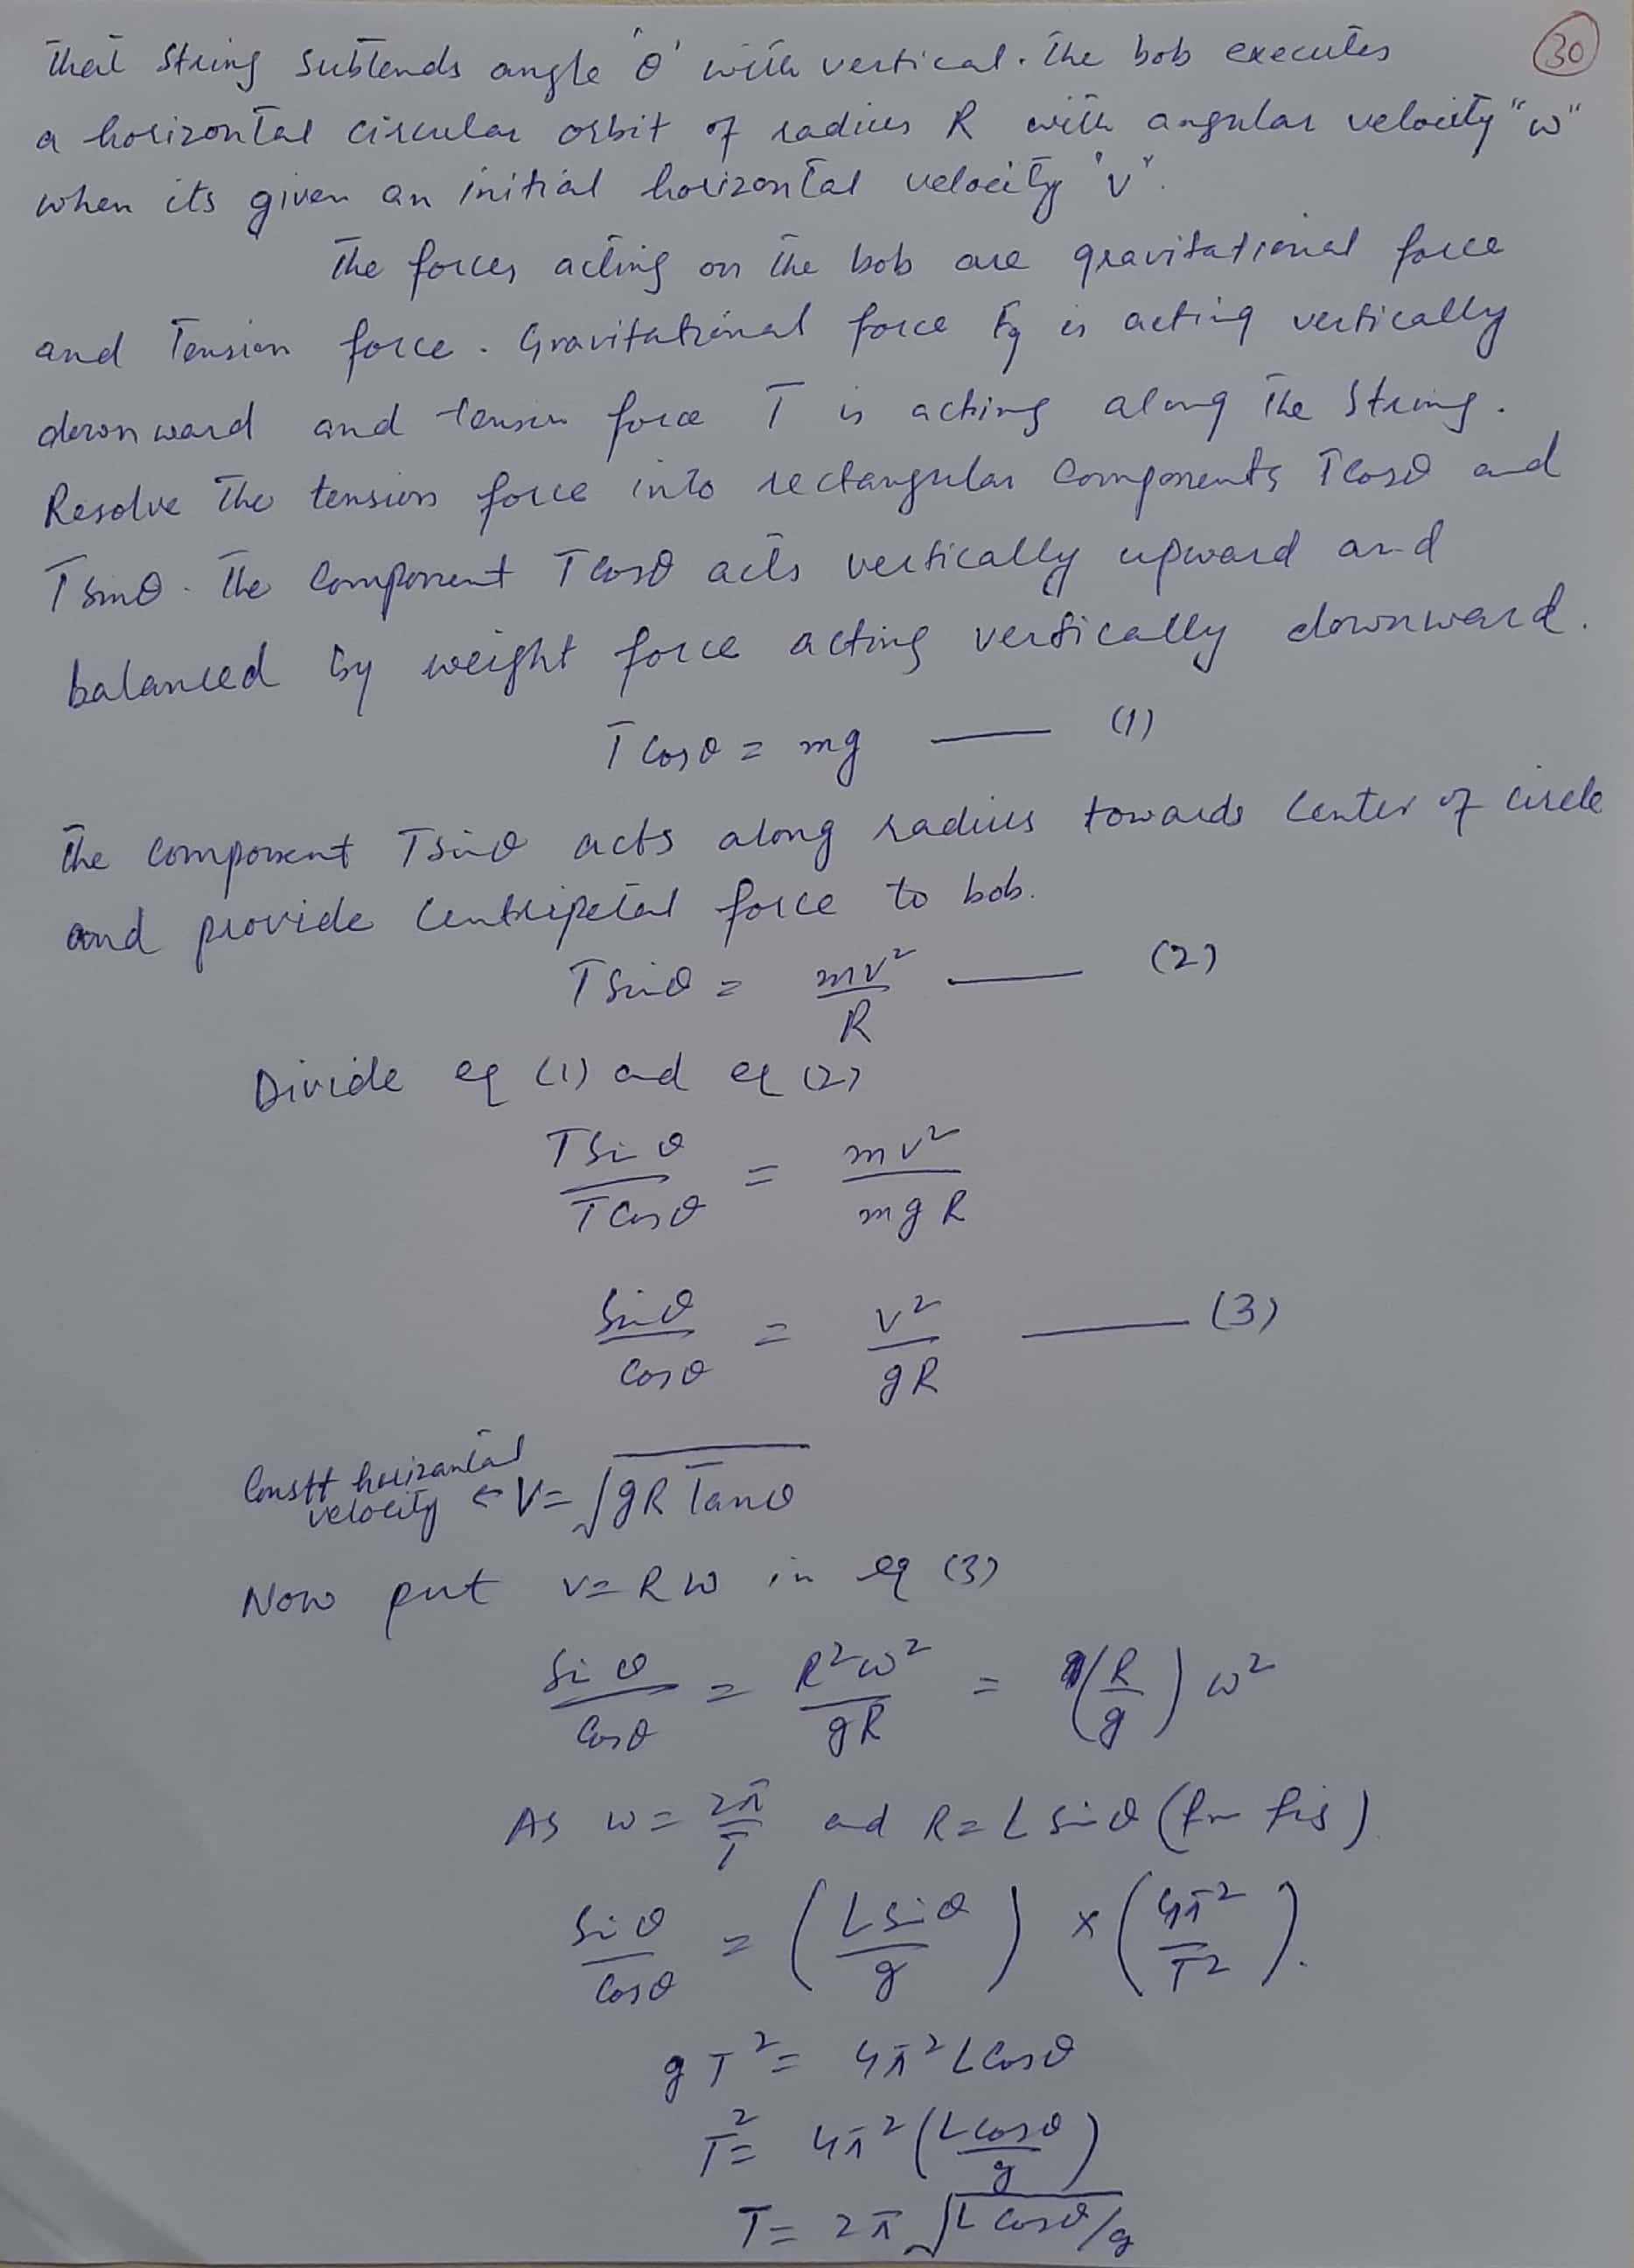 30
that string subtends angle 'θ' with vertical. The bob executes
a horizontal circular orbit of radius R with angular velocity "ω"
when its given an initial horizontal velocity "v".
The forces acting on the bob are gravitational force
and Tension force. Gravitational force Fg is acting vertically
downward and tension force T is acting along the string.
Resolve The tension force into rectangular components Tcosθ and
Tsinθ. The component Tcosθ acts vertically upward and
balanced by weight force acting vertically downward.
Tcosθ = mg —— (1)
The component Tsinθ acts along radius towards center of circle
and provide centripetal force to bob.
Tsinθ = mv²/R —— (2)
Divide eq (1) and eq (2)
Tsinθ/Tcosθ = mv²/mgR
sinθ/cosθ = v²/gR —— (3)
Constt horizantal
velocity ← V = √gR Tanθ
Now put v = Rω in eq (3)
sinθ/cosθ = R²ω²/gR = (R/g) ω²
As ω = 2π/T and R = L sinθ (fm fig)
sinθ/cosθ = (L sinθ/g) × (4π²/T²).
gT² = 4π² L cosθ
T² = 4π² (L cosθ/g)
T = 2π √L cosθ/g